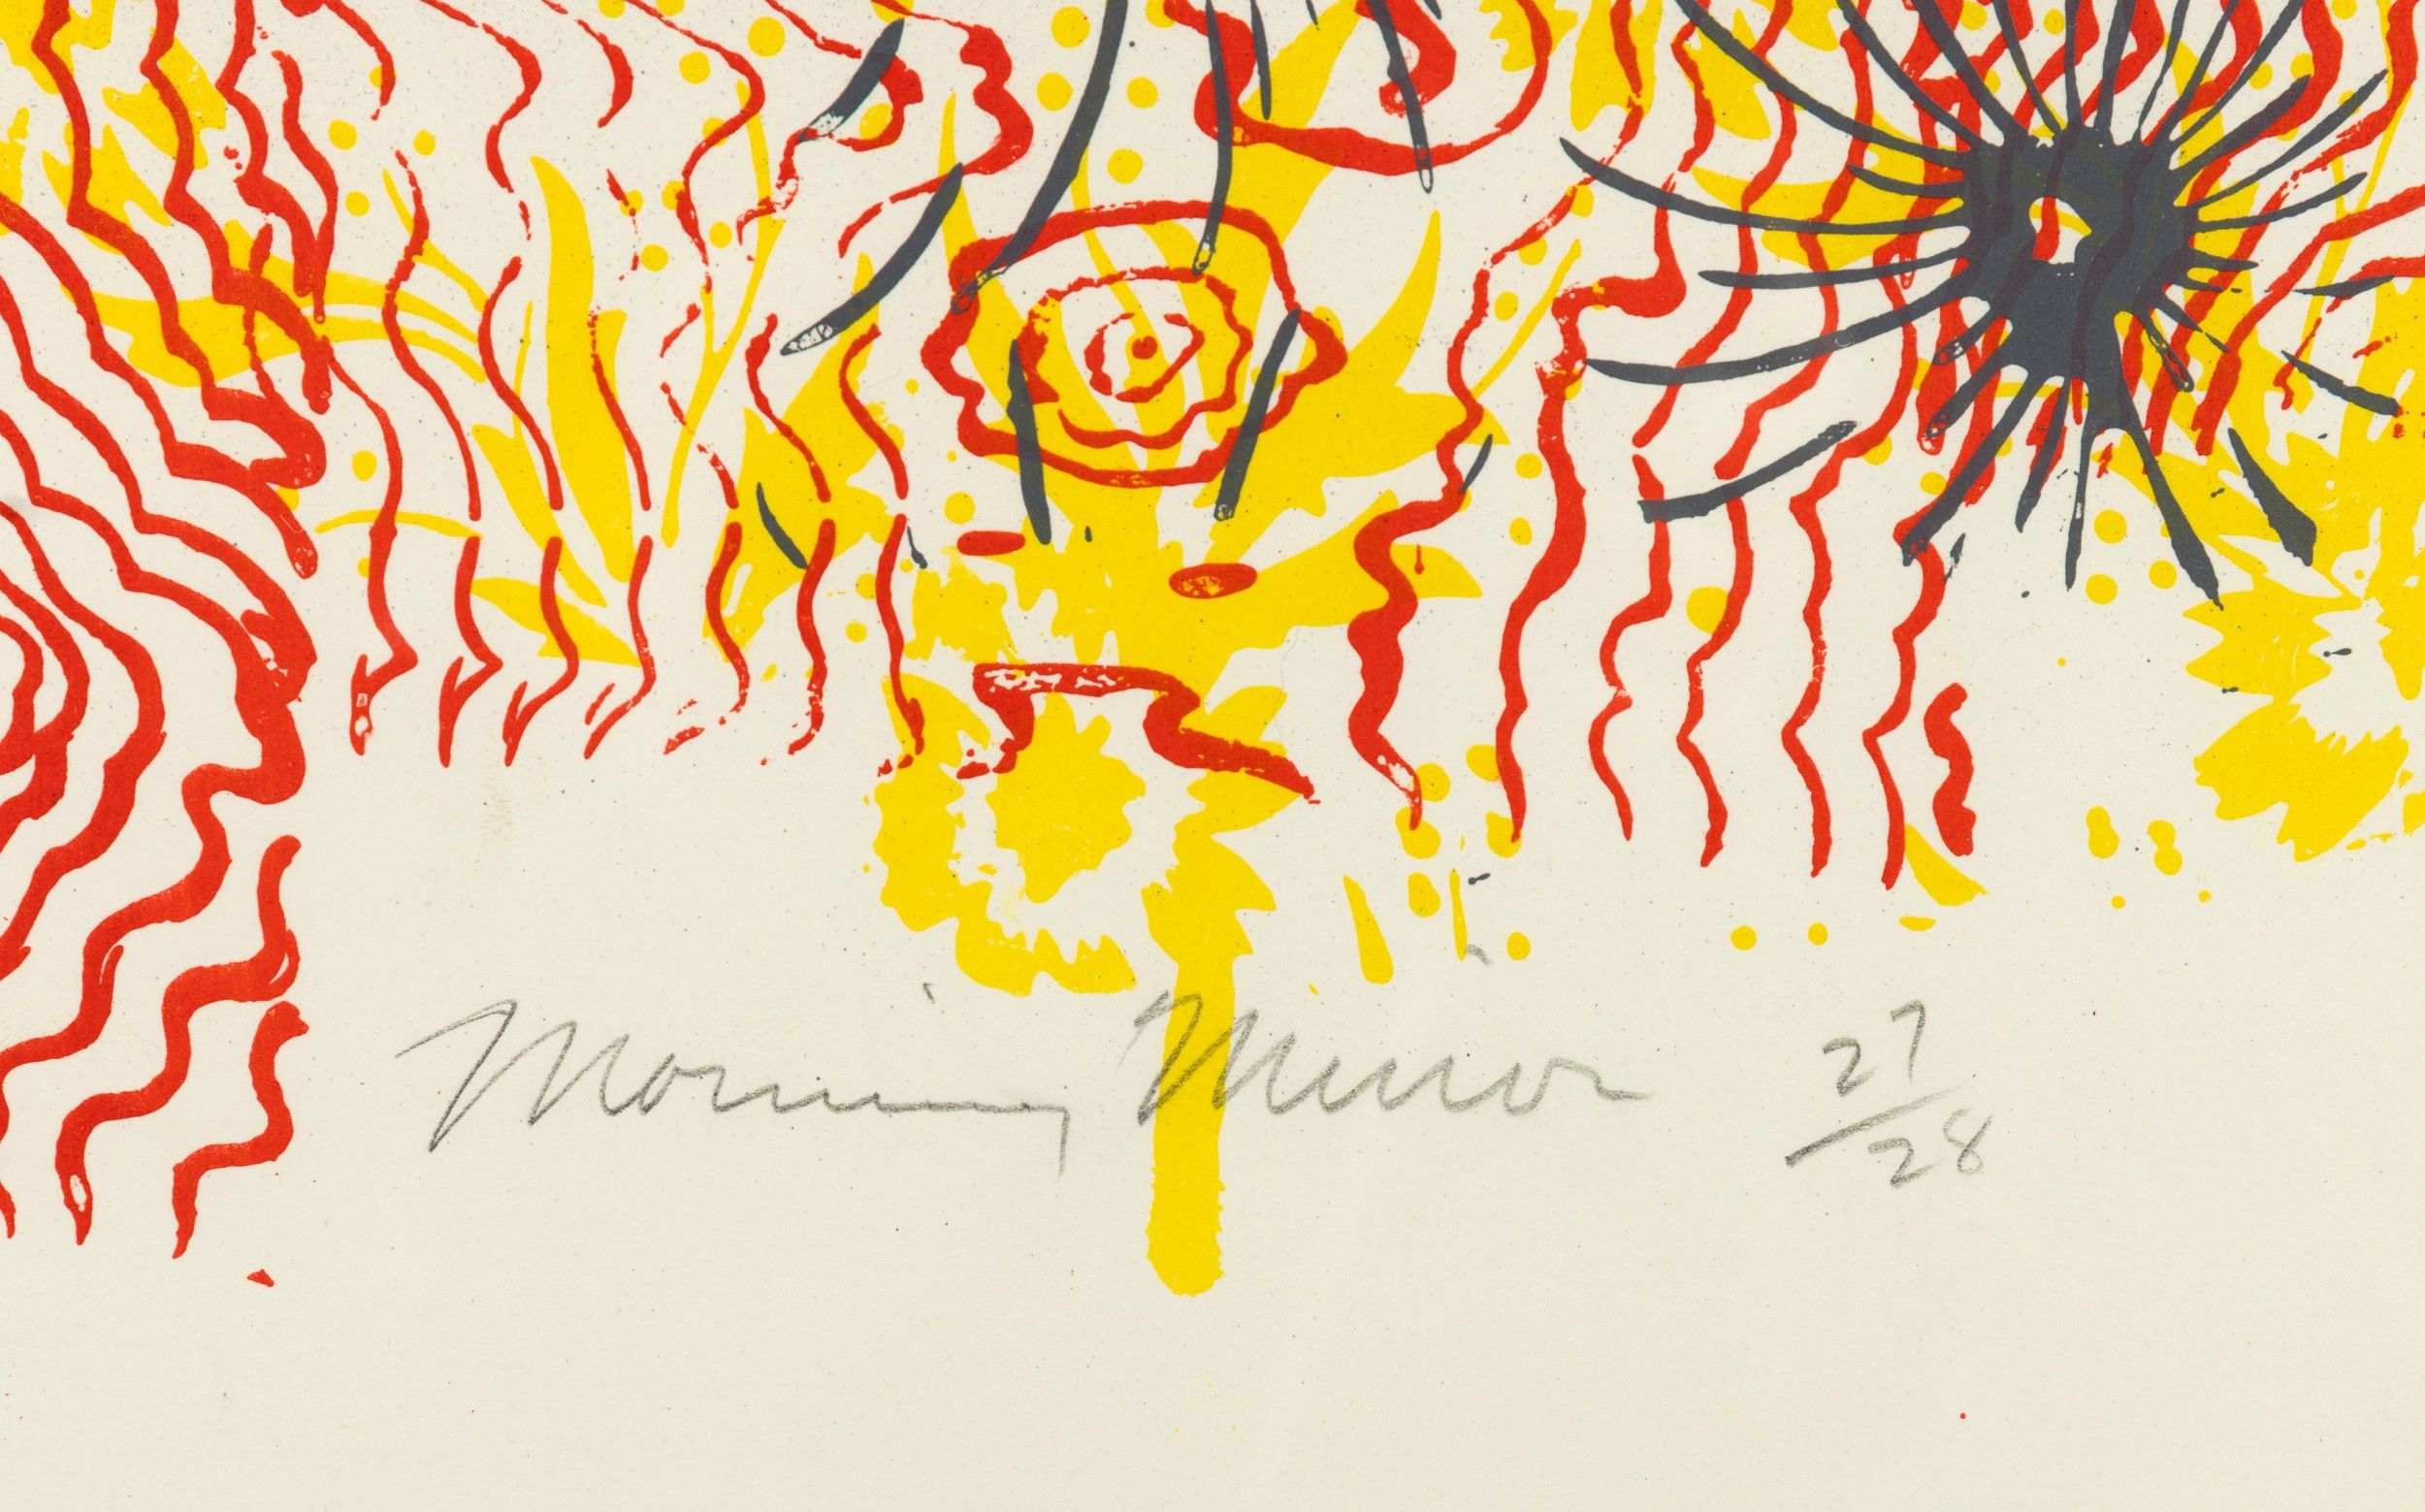 Morning Mirror 27/28